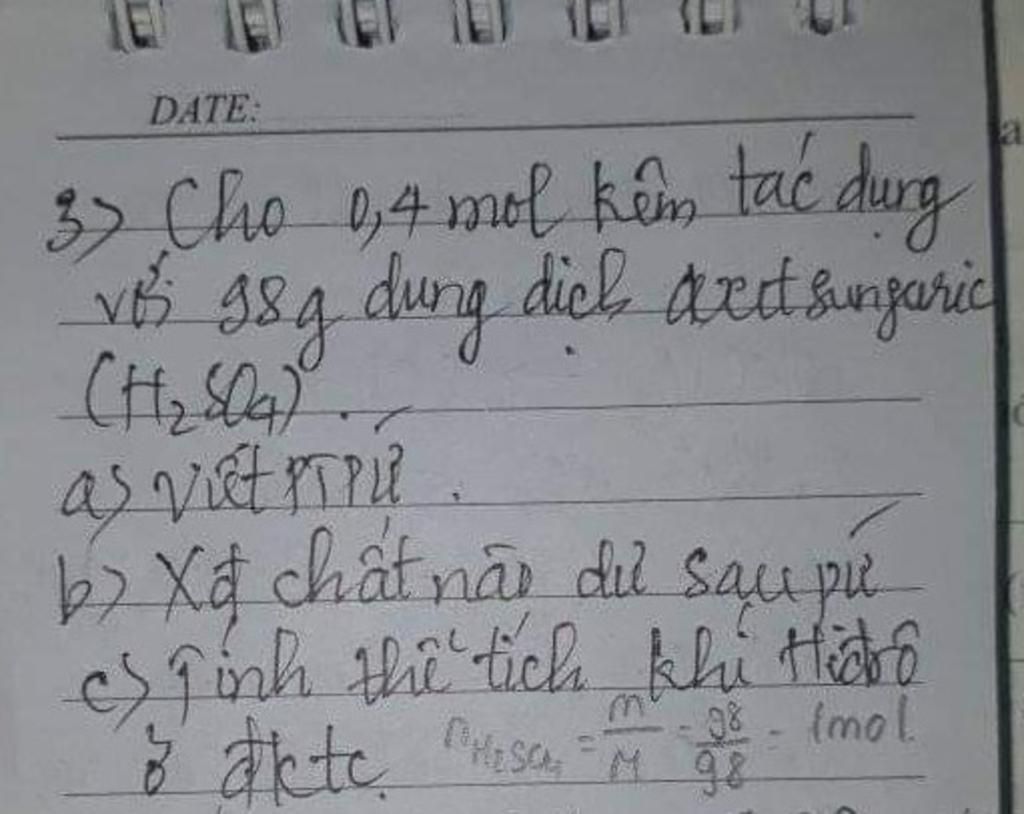 DATE:
3) Cho 0,4 mol kẽm tác dụng
với 98g dung dịch axit sunfuric
(H2SO4).
a) Viết PTPƯ.
b) Xđ chất nào dư sau pứ
c) Tính thể tích khí Hiđrô
ở đktc. nH2SO4 = m/M = 98/98 = 1mol